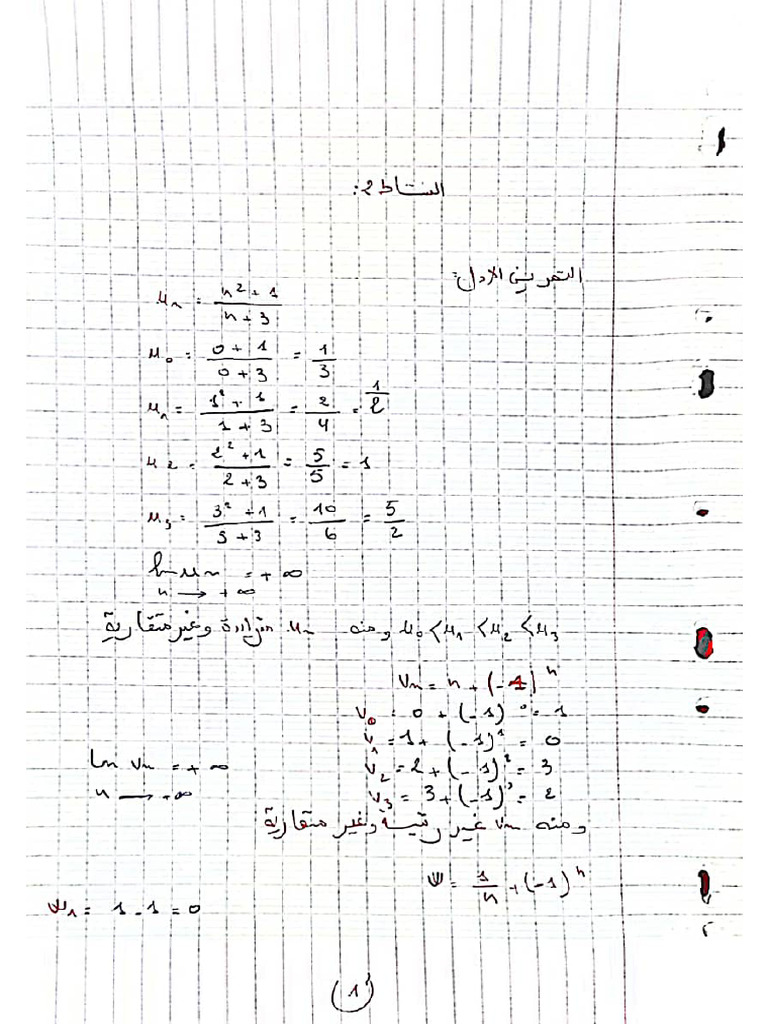 النشاط 2:
التمرين الاول:
uₙ = (n² + 1)/(n + 3)
u₀ = (0 + 1)/(0 + 3) = 1/3
u₁ = (1² + 1)/(1 + 3) = 2/4 = 1/2
u₂ = (2² + 1)/(2 + 3) = 5/5 = 1
u₃ = (3² + 1)/(3 + 3) = 10/6 = 5/2
lim uₙ = + ∞
n → + ∞
u₀ < u₁ < u₂ < u₃ ومنه uₙ متزايدة وغير متقاربة
Vₙ = n + (-1)ⁿ
V₀ = 0 + (-1)⁰ = 1
V₁ = 1 + (-1)¹ = 0
V₂ = 2 + (-1)² = 3
V₃ = 3 + (-1)³ = 2
lim Vₙ = + ∞
n → +∞
ومنه Vₙ غير رتيبة وغير متقاربة
W = 1/n + (-1)ⁿ
W₁ = 1 - 1 = 0
1